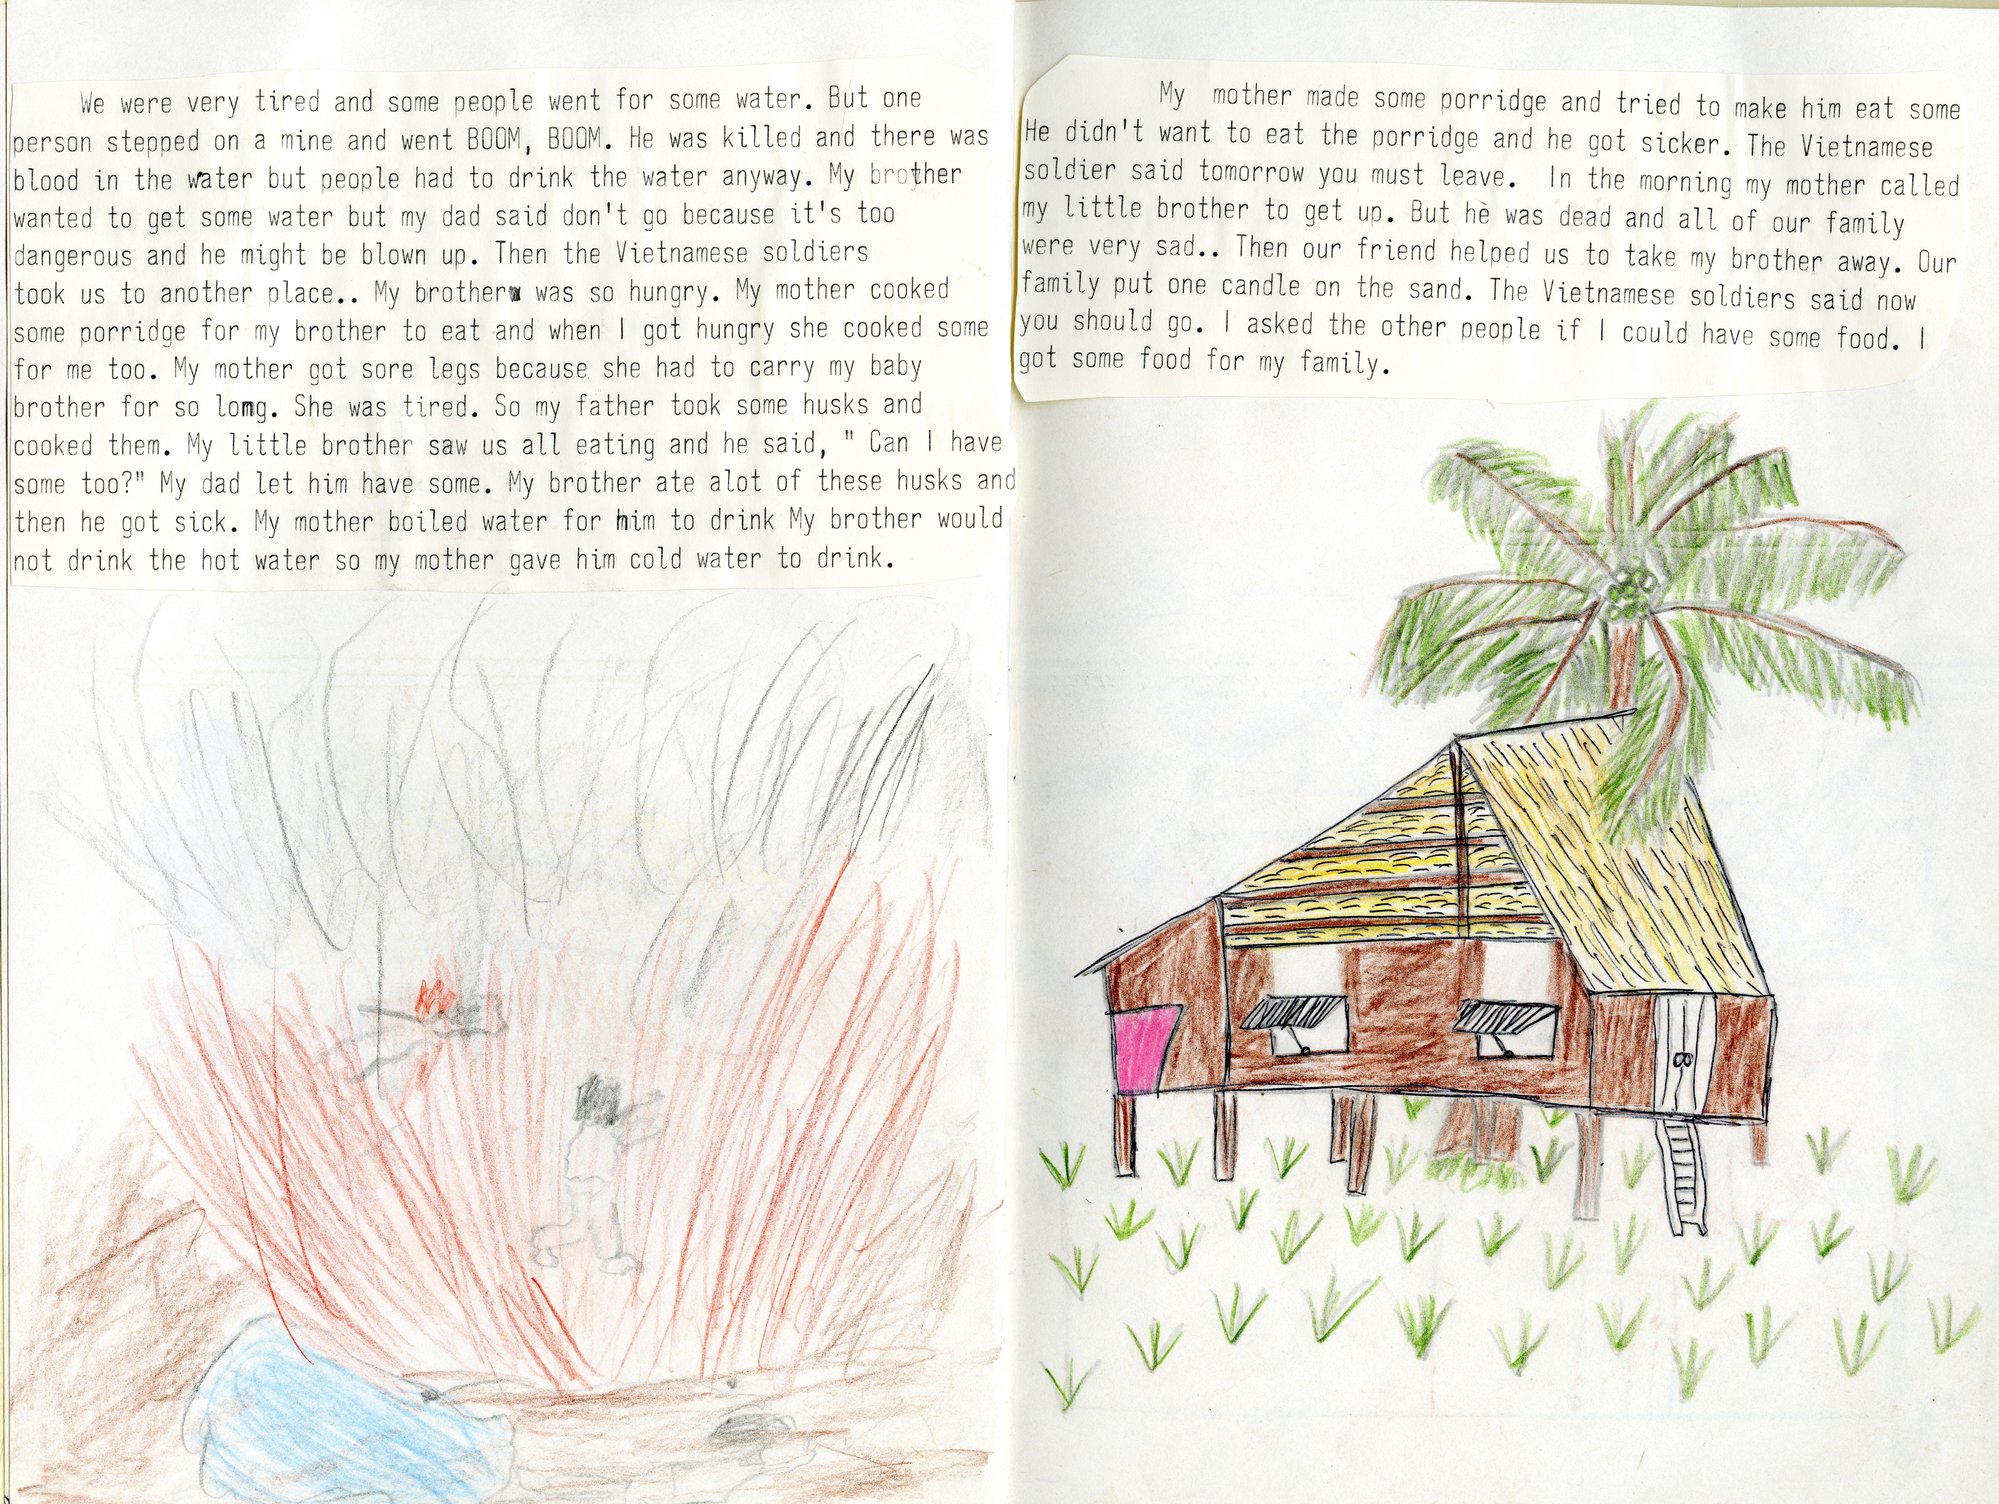 We were very tired and some people went for some water. But one
person stepped on a mine and went BOOM, BOOM. He was killed and there was
blood in the water but people had to drink the water anyway. My brother
wanted to get some water but my dad said don't go because it's too
dangerous and he might be blown up. Then the Vietnamese soldiers
took us to another place.. My brother was so hungry. My mother cooked
some porridge for my brother to eat and when I got hungry she cooked some
for me too. My mother got sore legs because she had to carry my baby
brother for so long. She was tired. So my father took some husks and
cooked them. My little brother saw us all eating and he said, " Can I have
some too?" My dad let him have some. My brother ate alot of these husks and
then he got sick. My mother boiled water for him to drink My brother would
not drink the hot water so my mother gave him cold water to drink.
My mother made some porridge and tried to make him eat some
He didn't want to eat the porridge and he got sicker. The Vietnamese
soldier said tomorrow you must leave. In the morning my mother called
my little brother to get up. But he was dead and all of our family
were very sad.. Then our friend helped us to take my brother away. Our
family put one candle on the sand. The Vietnamese soldiers said now
you should go. I asked the other people if I could have some food. I
got some food for my family.